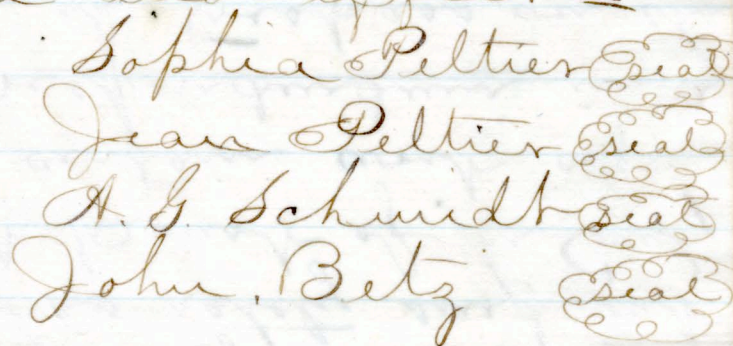 Sophia Peltier seal
Jean Peltier seal
A. G. Schmidt seal
John. Betz seal